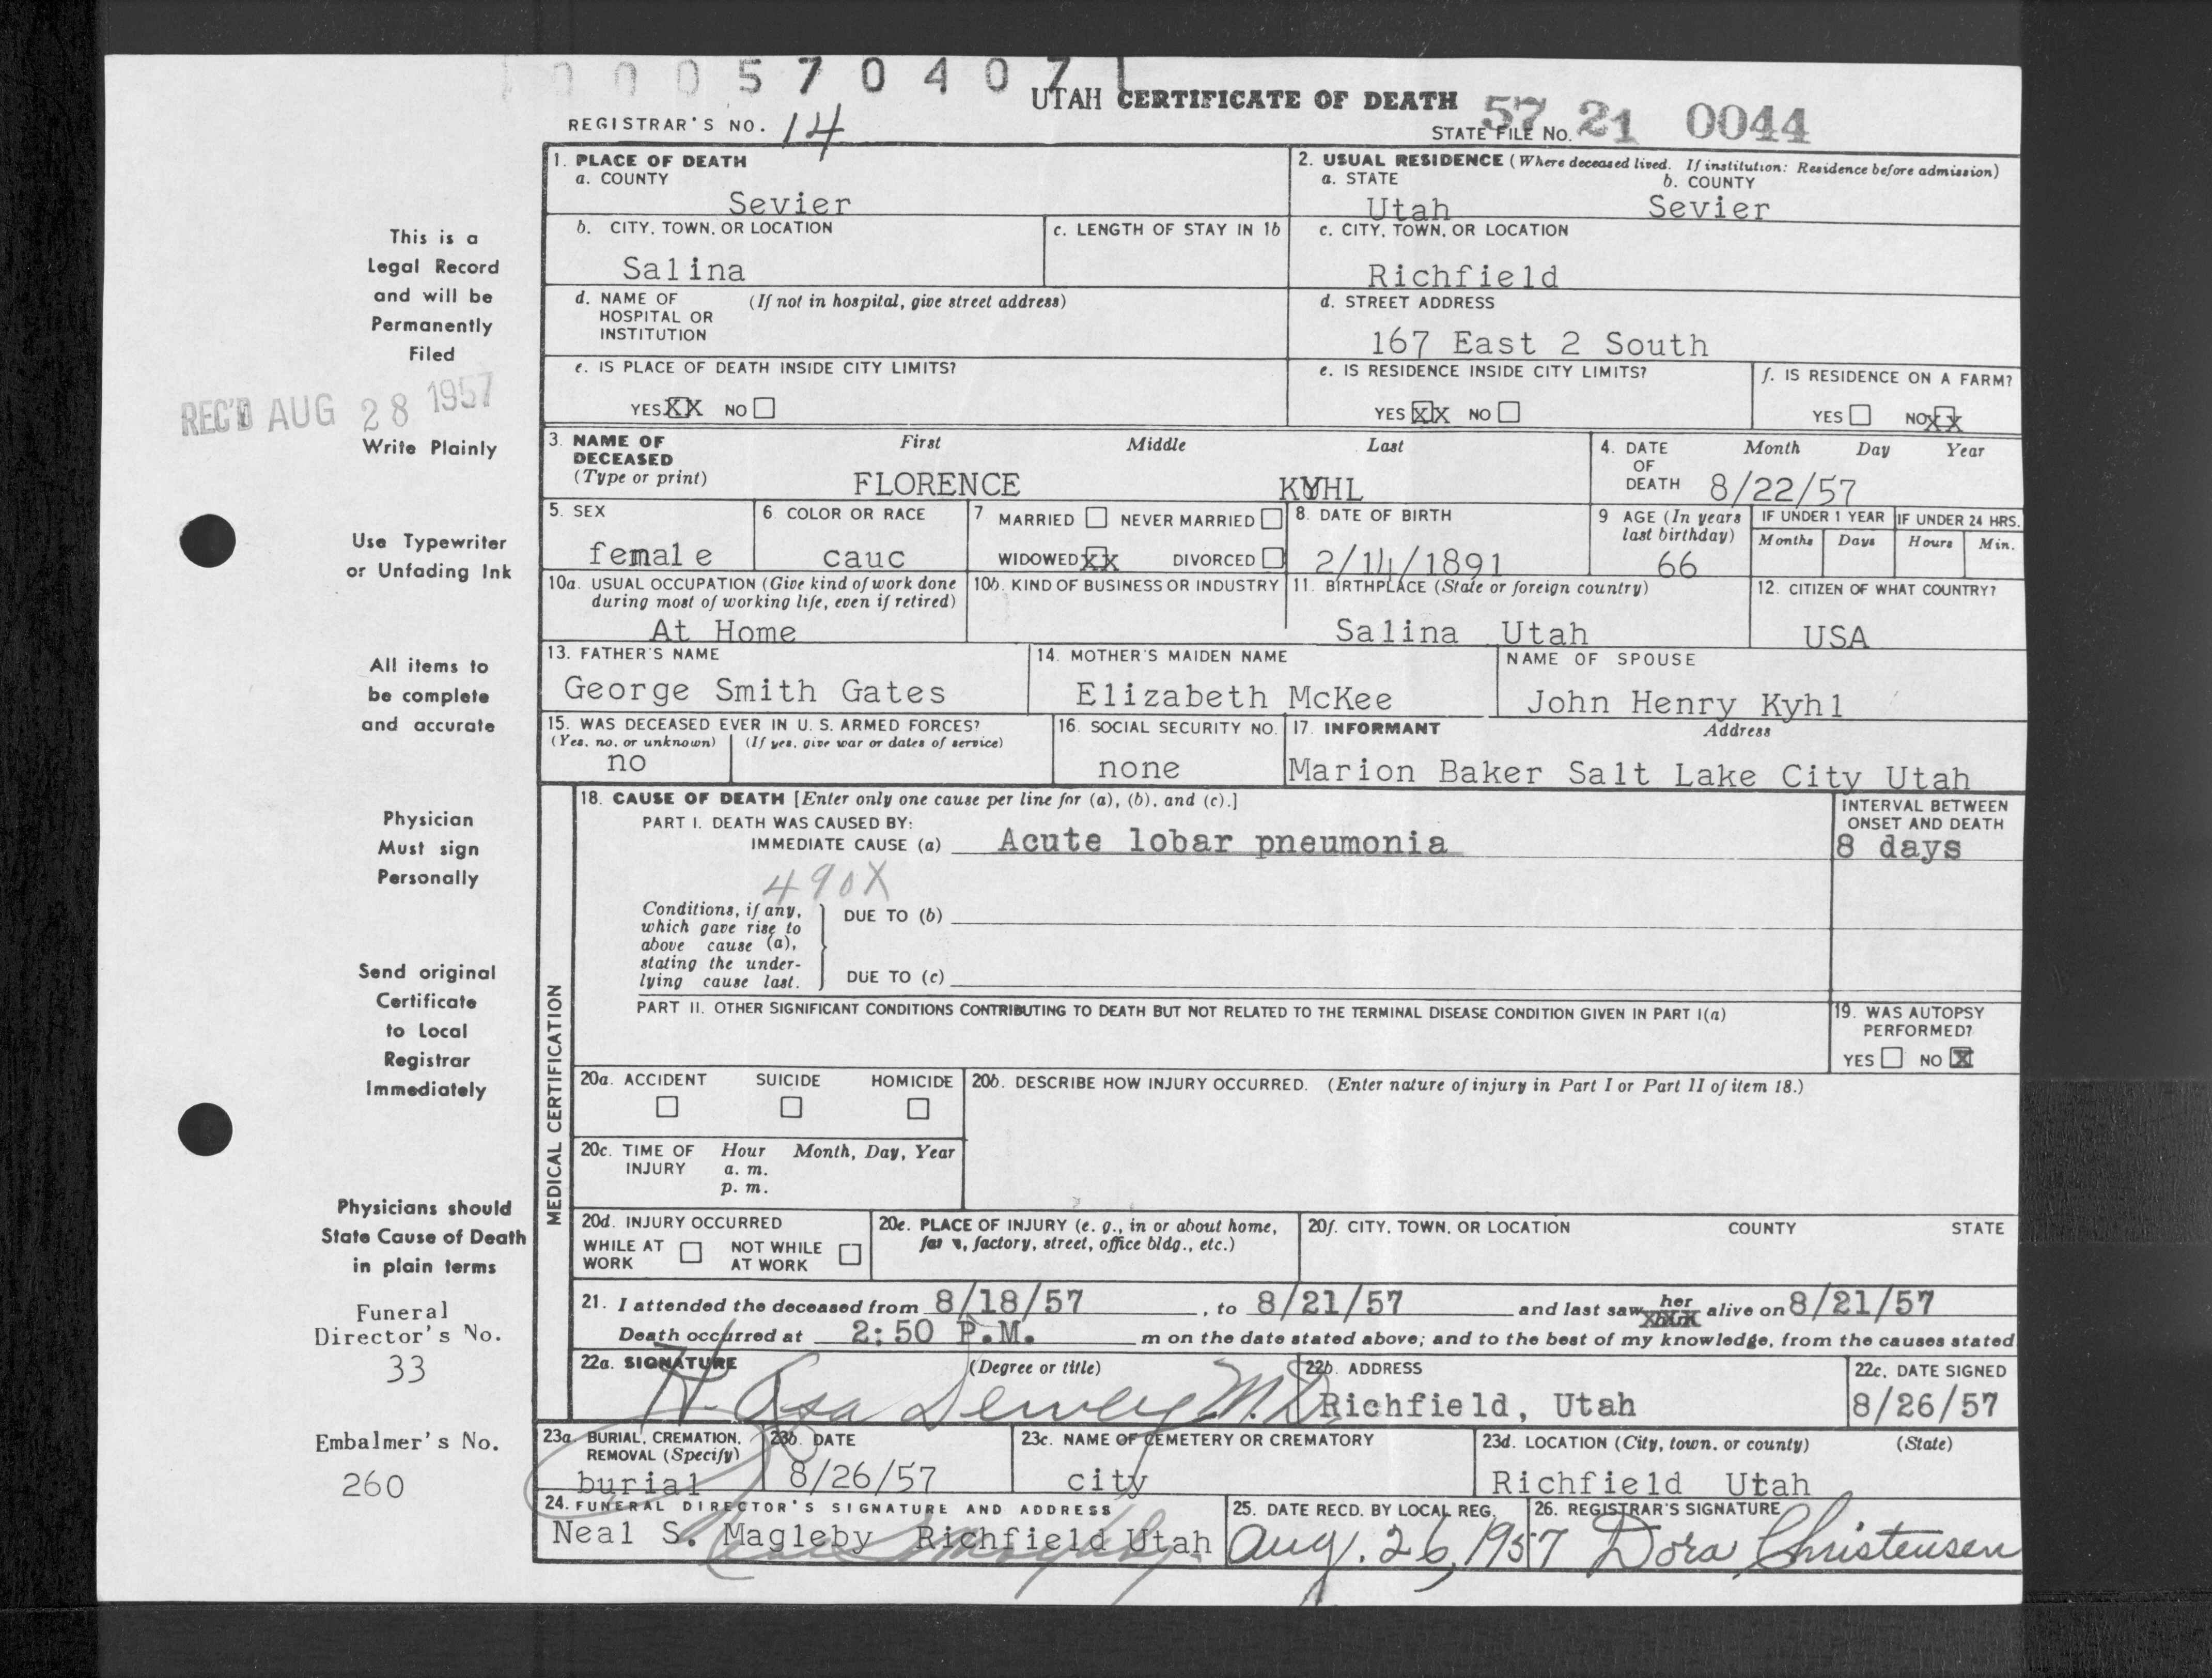 0 0 0 5 7 0 4 0 7 1
UTAH CERTIFICATE OF DEATH
REGISTRAR'S NO. 14
STATE FILE NO. 57 21 0044
1. PLACE OF DEATH
a. COUNTY
Sevier
2. USUAL RESIDENCE (Where deceased lived. If institution: Residence before admission)
a. STATE b. COUNTY
Utah Sevier
b. CITY, TOWN, OR LOCATION
Salina
c. LENGTH OF STAY IN 1b
c. CITY, TOWN, OR LOCATION
Richfield
d. NAME OF (If not in hospital, give street address)
HOSPITAL OR
INSTITUTION
d. STREET ADDRESS
167 East 2 South
e. IS PLACE OF DEATH INSIDE CITY LIMITS?
YES XX NO
e. IS RESIDENCE INSIDE CITY LIMITS?
YES XX NO
f. IS RESIDENCE ON A FARM?
YES NO XX
3. NAME OF First Middle Last
DECEASED
(Type or print)
FLORENCE KYHL
4. DATE Month Day Year
OF
DEATH 8/22/57
5. SEX
female
6 COLOR OR RACE
cauc
7 MARRIED NEVER MARRIED
WIDOWED XX DIVORCED
8. DATE OF BIRTH
2/14/1891
9 AGE (In years
last birthday)
66
IF UNDER 1 YEAR IF UNDER 24 HRS.
Months Days Hours Min.
10a. USUAL OCCUPATION (Give kind of work done
during most of working life, even if retired)
At Home
10b. KIND OF BUSINESS OR INDUSTRY
11. BIRTHPLACE (State or foreign country)
Salina Utah
12. CITIZEN OF WHAT COUNTRY?
USA
13. FATHER'S NAME
George Smith Gates
14. MOTHER'S MAIDEN NAME
Elizabeth McKee
NAME OF SPOUSE
John Henry Kyhl
15. WAS DECEASED EVER IN U. S. ARMED FORCES?
(Yes, no, or unknown) (If yes, give war or dates of service)
no
16. SOCIAL SECURITY NO.
none
17. INFORMANT Address
Marion Baker Salt Lake City Utah
MEDICAL CERTIFICATION
18. CAUSE OF DEATH [Enter only one cause per line for (a), (b), and (c).]
PART I. DEATH WAS CAUSED BY:
IMMEDIATE CAUSE (a) Acute lobar pneumonia
INTERVAL BETWEEN
ONSET AND DEATH
8 days
490X
Conditions, if any,
which gave rise to
above cause (a),
stating the under-
lying cause last.
DUE TO (b)
DUE TO (c)
PART II. OTHER SIGNIFICANT CONDITIONS CONTRIBUTING TO DEATH BUT NOT RELATED TO THE TERMINAL DISEASE CONDITION GIVEN IN PART I(a)
19. WAS AUTOPSY
PERFORMED?
YES NO X
20a. ACCIDENT SUICIDE HOMICIDE
20b. DESCRIBE HOW INJURY OCCURRED. (Enter nature of injury in Part I or Part II of item 18.)
20c. TIME OF Hour Month, Day, Year
INJURY a. m.
p. m.
20d. INJURY OCCURRED
WHILE AT NOT WHILE
WORK AT WORK
20e. PLACE OF INJURY (e. g., in or about home,
farm, factory, street, office bldg., etc.)
20f. CITY, TOWN, OR LOCATION COUNTY STATE
21. I attended the deceased from 8/18/57, to 8/21/57 and last saw her alive on 8/21/57
Death occurred at 2:50 P.M. m on the date stated above; and to the best of my knowledge, from the causes stated
22a. SIGNATURE (Degree or title)
H. Asa Dewey M.D.
22b. ADDRESS
Richfield, Utah
22c. DATE SIGNED
8/26/57
23a. BURIAL, CREMATION,
REMOVAL (Specify)
burial
23b. DATE
8/26/57
23c. NAME OF CEMETERY OR CREMATORY
city
23d. LOCATION (City, town, or county) (State)
Richfield Utah
24. FUNERAL DIRECTOR'S SIGNATURE AND ADDRESS
Neal S. Magleby Richfield Utah
25. DATE RECD. BY LOCAL REG.
Aug. 26, 1957
26. REGISTRAR'S SIGNATURE
Dora Christensen
This is a
Legal Record
and will be
Permanently
Filed
REC'D AUG 28 1957
Write Plainly
Use Typewriter
or Unfading Ink
All items to
be complete
and accurate
Physician
Must sign
Personally
Send original
Certificate
to Local
Registrar
Immediately
Physicians should
State Cause of Death
in plain terms
Funeral
Director's No.
33
Embalmer's No.
260